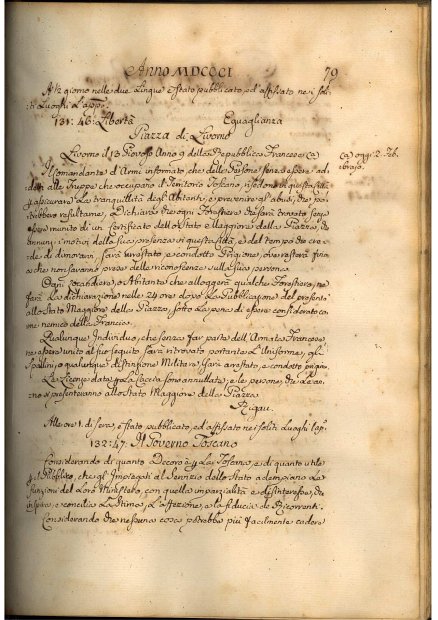 Anno MDCCCI 79
A 12 giorno nelle due Lingue è stato pubblicato, ed affissato nei soli-
ti Luoghi
131: 46: Libertà Eguaglianza
Piazza di Livorno
Livorno il 13 Piovoso Anno 9 della Repubblica Francese (a)
(a) oggi 2. Feb-
brajo.
Il Comandante d'Armi informato che delle Persone senza essere ad-
dette alle Truppe che occupano il Territorio Toscano, risiedono in questa Città,
p assicurare la tranquillità degli Abitanti, e prevenire gli abusi, che po-
trebbero resultarne, Dichiara che ogni Forestiere che sarà trovato senza
essere munito di un Certificato dello Stato Maggiore della Piazza, che
i motivi della sua presenza in questa Città, e del tempo che cre-
de di dimorarvi, sarà arrestato, e condotto Prigione, ove resterà fino
a che non saranno prese delle riconoscenze sulla sua persona
Ogni Locandiere, o Abitante che alloggerà qualche Forestiero, ne
farà la dichiarazione nelle 24 ore dopo la Pubblicazione del presente
allo Stato Maggiore della Piazza sotto la pena di essere considerato co-
me nemico della Francia.
Qualunque Individuo, che senza far parte dell'Armata Francese,
ne essere unito al suo seguito sarà ritrovato portante l'Uniforme, gli
Spallini, o qualunque distinzione Militare sarà arrestato, e condotto prigione.
Le Licenze date p la Caccia sono annullate; e le persone, che le av-
no si presenteranno allo Stato Maggiore della Piazza
Rigau.
Alle ore 1. di sera, è stato pubblicato, ed affissato nei soliti Luoghi
132: 47. Il Governo Toscano
Considerando di quanto Decoro è p la Toscana, e di quanto utile
p il Pubblico, che gl'Impiegati al Servizio dello Stato adempiano le
funzioni del Loro Ministero, con quella imparzialità e disinteresse, che
inspira, e concilia la Stima, l'affezione, e la fiducia de Ricorrenti.
Considerando che nessuna cosa potrebbe più facilmente cadere